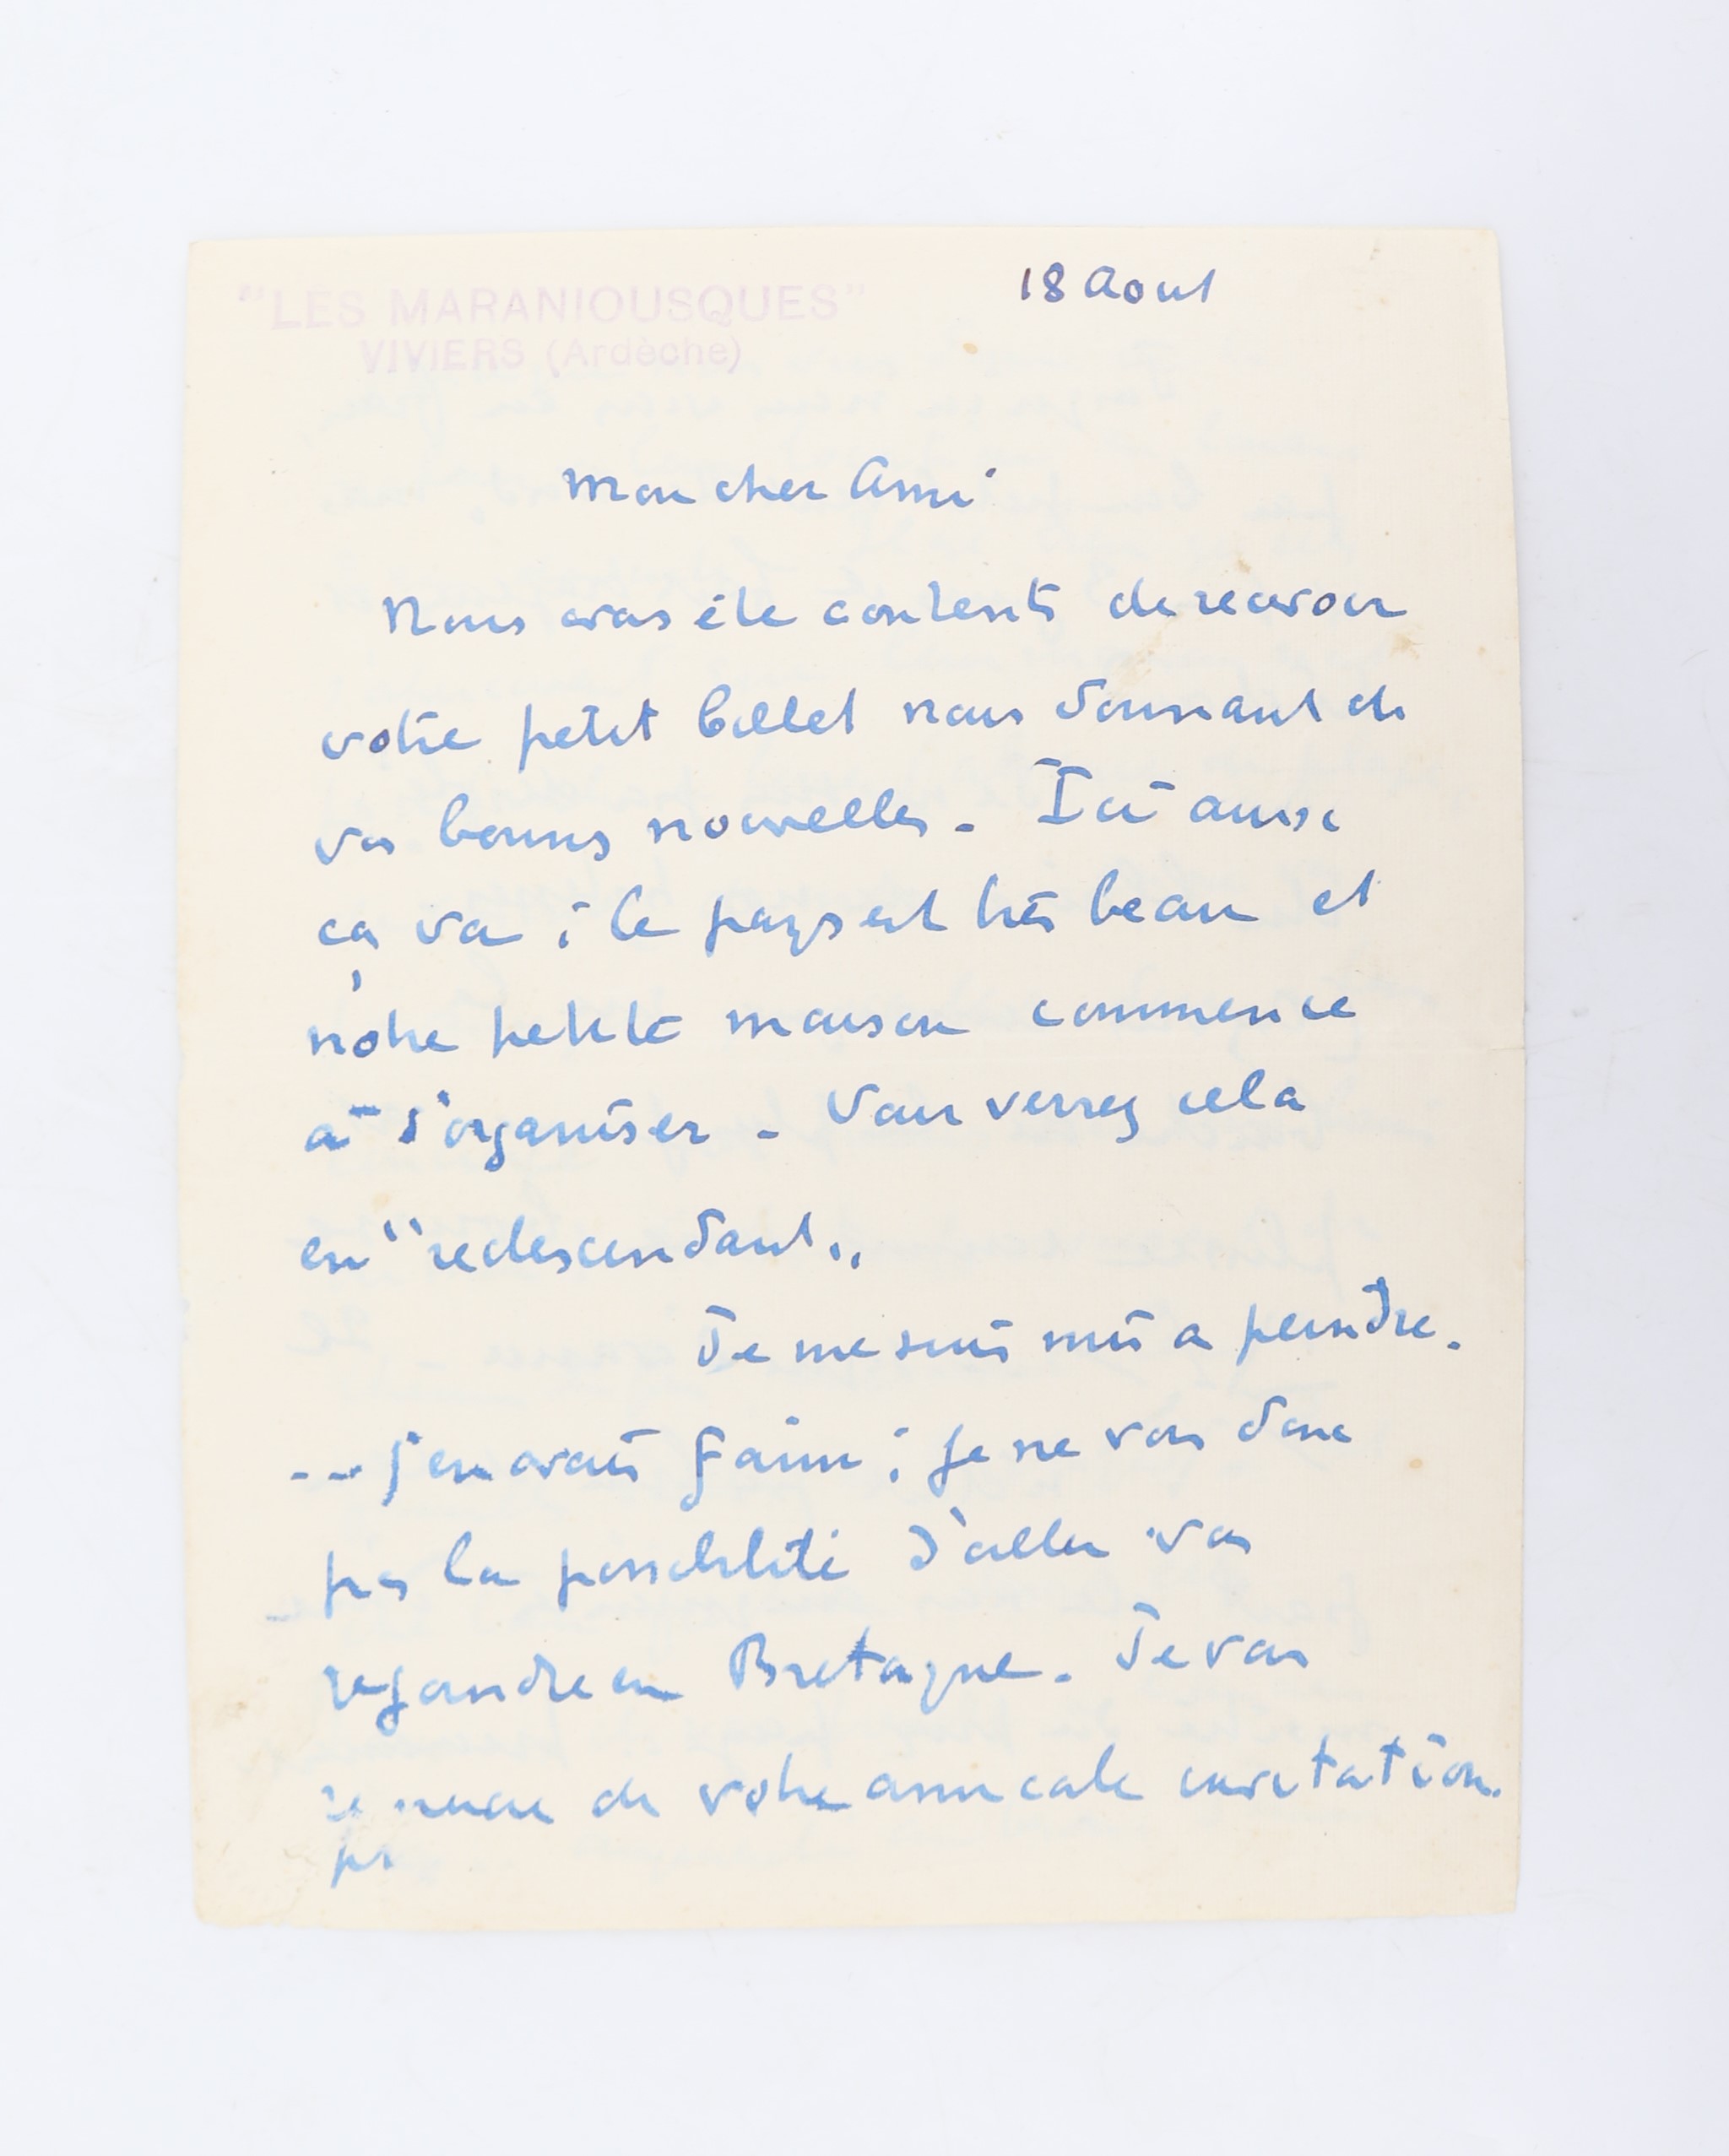 "LES MARANIOUSQUES"
VIVIERS (Ardèche)
18 Aout
Mon cher Ami
Nous avons été contents de recevoir
votre petit billet nous donnant de
vos bonnes nouvelles - Ici aussi
ça va ; le pays est très beau et
notre petite maison commence
à s'organiser - Vous verrez cela
en "redescendant"
Je me suis mis a peindre.
-- j'en avais faim ; je ne vois donc
pas la possibilité d'aller vous
rejoindre en Bretagne. Je vous
remercie de votre amicale invitation.